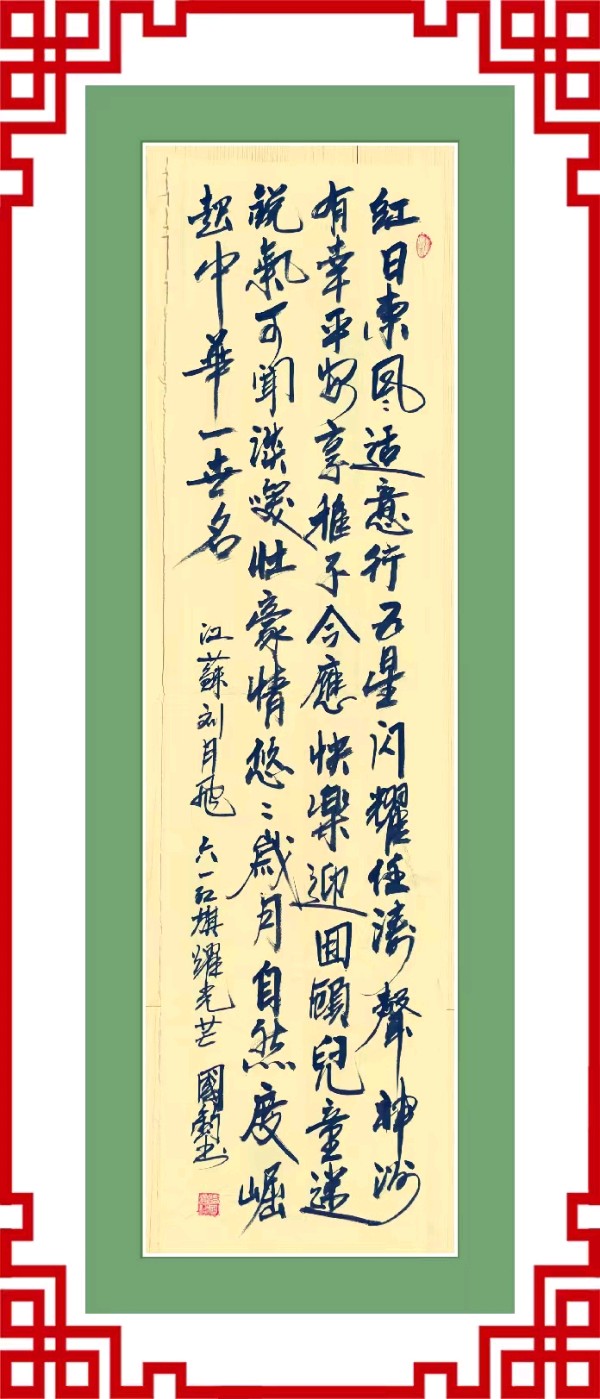 紅日東風适意行五星闪耀任濤聲神洲
有幸平安享稚子今應快樂迎回顧兒童迷
氣可聞談笑壯豪情悠々歲月自然度崛
起中華一世名
江蘇刘月飛 六一红旗耀光芒 國鈞书